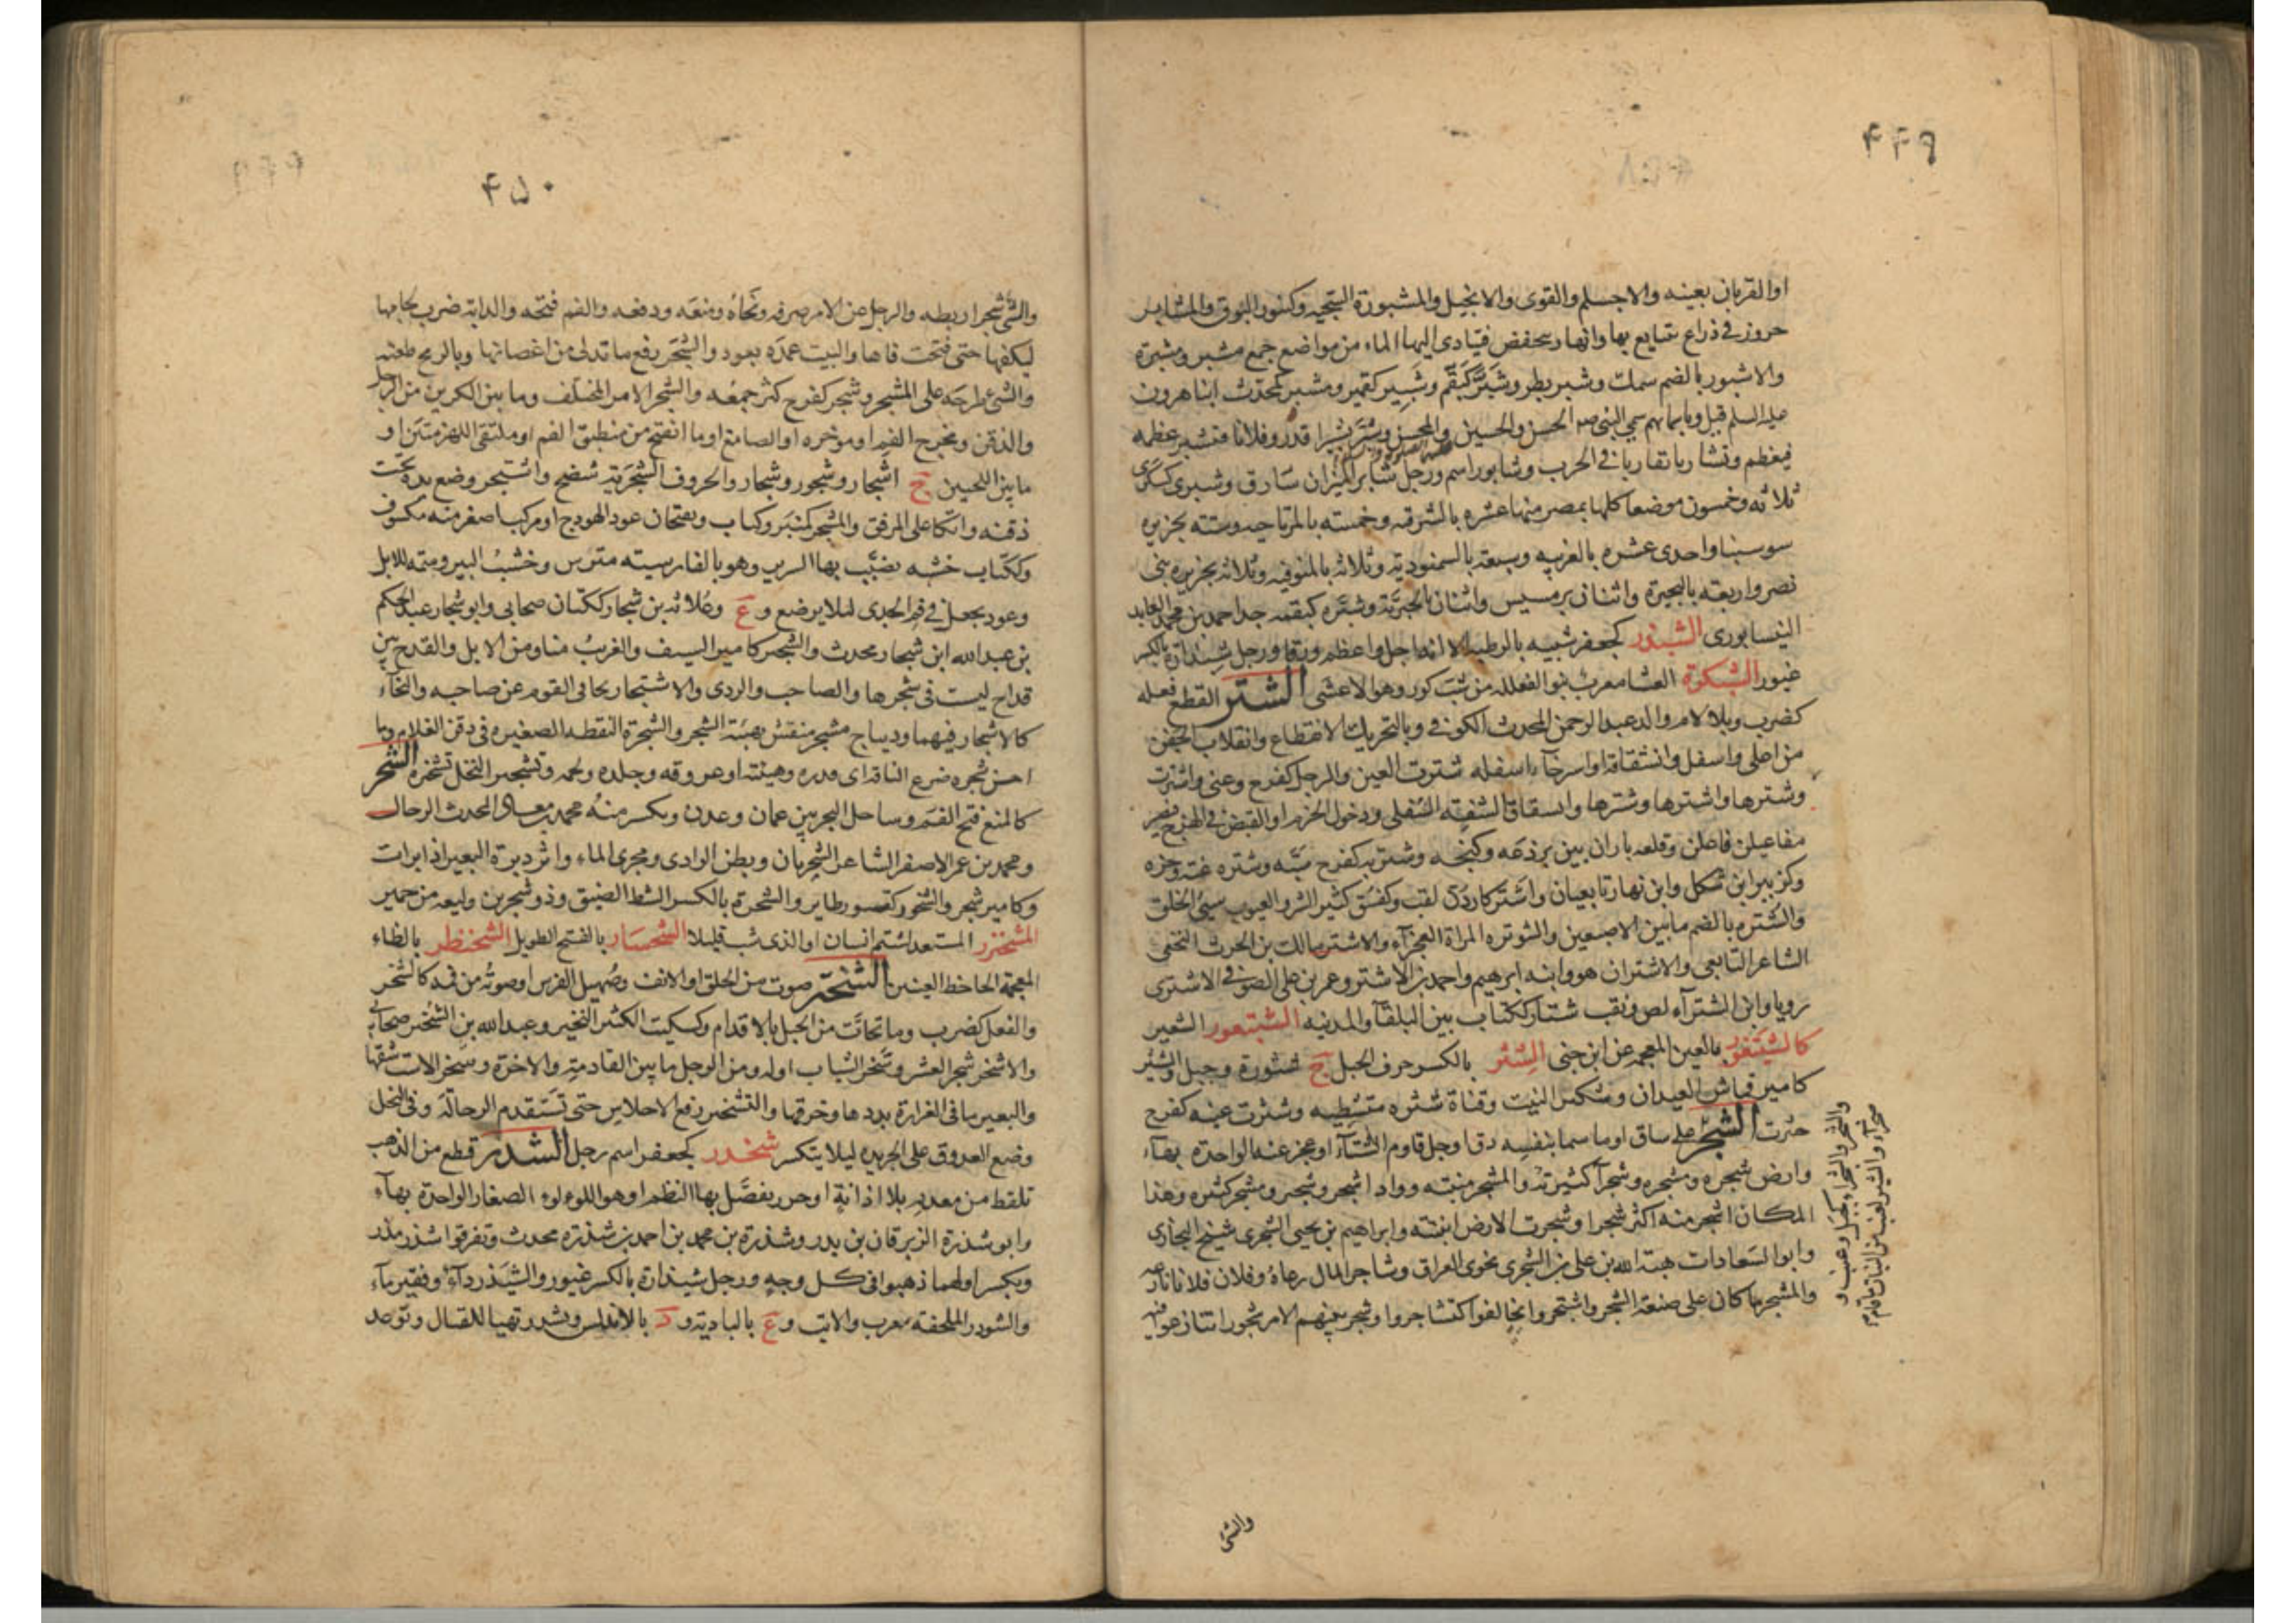 ۴۴۹
او القربان بعينه والاجسام والقوى والانجيل والمشبورة السخية وكتنور البوق والمشابر
حزوز في ذراع يتبايع بها وانهار تنخفض فيتادى اليها الماء من مواضع جمع مشبر ومشبرة
والاشبور بالضم سمك وشبر بطر وشبر كبقم وشبير كقمير ومشبر كمحدث ابنا هرون
عليه السلم قيل وباسمائهم سمى النبى صم الحسن والحسين والمحسن وشبر تشبيرا قدر وفلانا فتشبر عظمه
فيعظم وتشابرا تقاربا في الحرب وشابور اسم ورجل شابر الميزان سارق وشبرى كسكرى
ثلاثه وخمسون موضعا كلها بمصر منها عشره بالشرقيه وخمسته بالمرتاحيه وستة بجزيره
قوسينا واحدى عشره بالغربيه وسبعة بالسمنوديه وثلاثه بالمنوفيه وثلاثه بجزيره بنى
نصر واربعه بالبحيرة واثنان برمسيس واثنان بالجيزة وشبره كبقمه جد احمد بن محمد العابد
النيسابورى الشبذر كجعفر شبيه بالرطبة الا انها اجل واعظم ورقا ورجل شبذارة بالكسر
غيور الشبكرة العشا معرب بنوا الفعلله من شب كور وهو الاعشى الشتر القطع فعله
كضرب وبلا لام والد عبد الرحمن المحدث الكوفي وبالتحريك الانقطاع وانقلاب الجفن
من اعلى واسفل وانشقاقه او استرخاء اسفله شترت العين والرجل كفرح وعنى وانشترت
وشترها واشترها وشترها وانشقاق الشفه السفلى ودخول الخرم او القبض في الهزج فيصير
مفاعيلن فاعلن وقلعه باران بين برذعه وكنجه وشتر به كفرح سبه وشتره غته وجره
وكزبير ابن شكل وابن نهار تابعيان واشتر كاردن لقب وكفسق كثير الشر والعيوب سيئ الخلق
والشتره بالضم ما بين الاصبعين والشوتره المراة العجزآء والاشتر مالك بن الحرث النخعى
الشاعر التابعى والاشتران هو وابنه ابرهيم واحمد بن الاشتر وعمر بن على الصوفي الاشترى
رويا وابن الشترآء لص ونقب شتار ككتاب بين البلقآ والمدنيه الشيتعور الشعير
كالشيتغور بالغين المعجمه عن ابن جنى الشثر بالكسر حرف الجبل ج شثورة وجبل والشثر
كامير قماش العيدان وشكير النبت وقناة شثره متشظيه وشثرت عينه كفرح
خثرت الشجر على ساق او ما سما بنفسه دق او جل قاوم الشتآ او عجز عنه الواحدة بهآء
وارض شجره ومشجره وشجرآ كثيرته والمشجر منبته وواد اشجر وشجير ومشجر كثيره وهذا
المكان اشجر منه اكثر شجرا وشجرت الارض انبتته وابراهيم بن يحيى الشجرى شيخ البخارى
وابو السعادات هبة الله بن على بن الشجرى نحوى العراق وشاجر المال رعاه وفلان فلانا نازعه
والمشجر ما كان على صنعة الشجر واشتجروا تخالفوا كتشاجروا وشجر بينهم الامر شجورا تنازعوا فيه
والشئ
۴۵۰
والشئ شجرا ربطه والرجل عن الامر صرفه ونحاه ومنعه ودفعه والفم فتحه والدابة ضرب لجامها
ليكفها حتى فتحت فاها والبيت عمده بعود والشجر رفع ما تدلى من اغصانها وبالرمح طعنه
والشئ طرحه على المشجر وشجر كفرح كثر جمعه والشجر الامر المختلف وما بين الكرين من الرحل
والذقن ومخرج الفم او موخره او الصامغ او ما انفتح من منطبق الفم او ملتقى اللهزمتين او
ما بين اللحيين ج اشجار وشجور وشجار والحروف الشجرية شضج واشتجر وضع يده تحت
ذقنه واتكا على المرفق والمشجر كمنبر وكتاب ويفتحان عود الهودج او مركب اصغر منه مكسوف
وككتاب خشبه يضبب بها السرير وهو بالفارسيته مترس وخشب البير وسمه للابل
وعود يجعل في فم الجدى لئلا يرضع و ع وعلاثه بن شجار ككتان صحابى وابو شجار عبد الحكم
بن عبد الله ابن شجار محدث والشجير كامير السيف والغريب منا ومن الابل والقدح بين
قداح ليست في شجرها والصاحب والردى والاشتجار تجافى القوم عن صاحبه والنجآء
كالانشجار فيهما وديباج مشجر منقش بهيئة الشجر والشجرة النقطه الصغيره في ذقن الغلام وما
احسن شجره ضرع الناقه اى قدره وهيئته او عروقه وجلده ولحمه وتشجير النخل تشخيره الشحر
كالمنع فتح الفم وساحل البحر بين عمان وعدن ويكسر منه محمد بن معاذ المحدث الرحال
ومحمد بن عمر الاصفر الشاعر الشحريان وبطن الوادى ومجرى الماء واثر دبرة البعير اذا برات
وكامير شجر والشحور كصبور طاير والشحرة بالكسر الشط الضيق وذو شحر بن وليعه من حمير
المشحنزر المستعد لشتم انسان او الذى شبـ قليلا الشحسار بالفتح الطويل الشخنظر بالظاء
المعجمة الجاحظ العينين الشخير صوت من الحلق او الانف وصهيل الفرس او صوته من فمه كالشخر
والفعل كضرب وما تحات من الجبل بالاقدام وكسكيت الكثير النخير وعبد الله بن الشخير صحابى
والاشخر شجر العشر وشخر الشباب اوله ومن الرحل ما بين القادمة والاخرة وشخر الاست شقها
والبعير ما في الغرارة بددها وخرقها والتشخير رفع الاحلاس حتى تستقدم الرحالة وفى النخل
وضع العذوق على الجريده ليلا يتكسر شخدر كجعفر اسم رجل الشذر قطع من الذهب
تلقط من معدنه بلا اذابة او خرز يفصل بها النظم او هو اللولوء الصغار الواحدة بهآء
وابو شذرة الزبرقان بن بدر وشذرة بن محمد بن احمد بن شذره محدث وتفرقوا شذر مذر
ويكسر اولهما ذهبوا في كل وجه ورجل شيذارة بالكسر غيور والشيذر دآء وفقير مآء
والشوذر الملحفة معرب والاتب و ع بالبادية و د بالاندلس وتشذر تهيا للقتال وتوعد